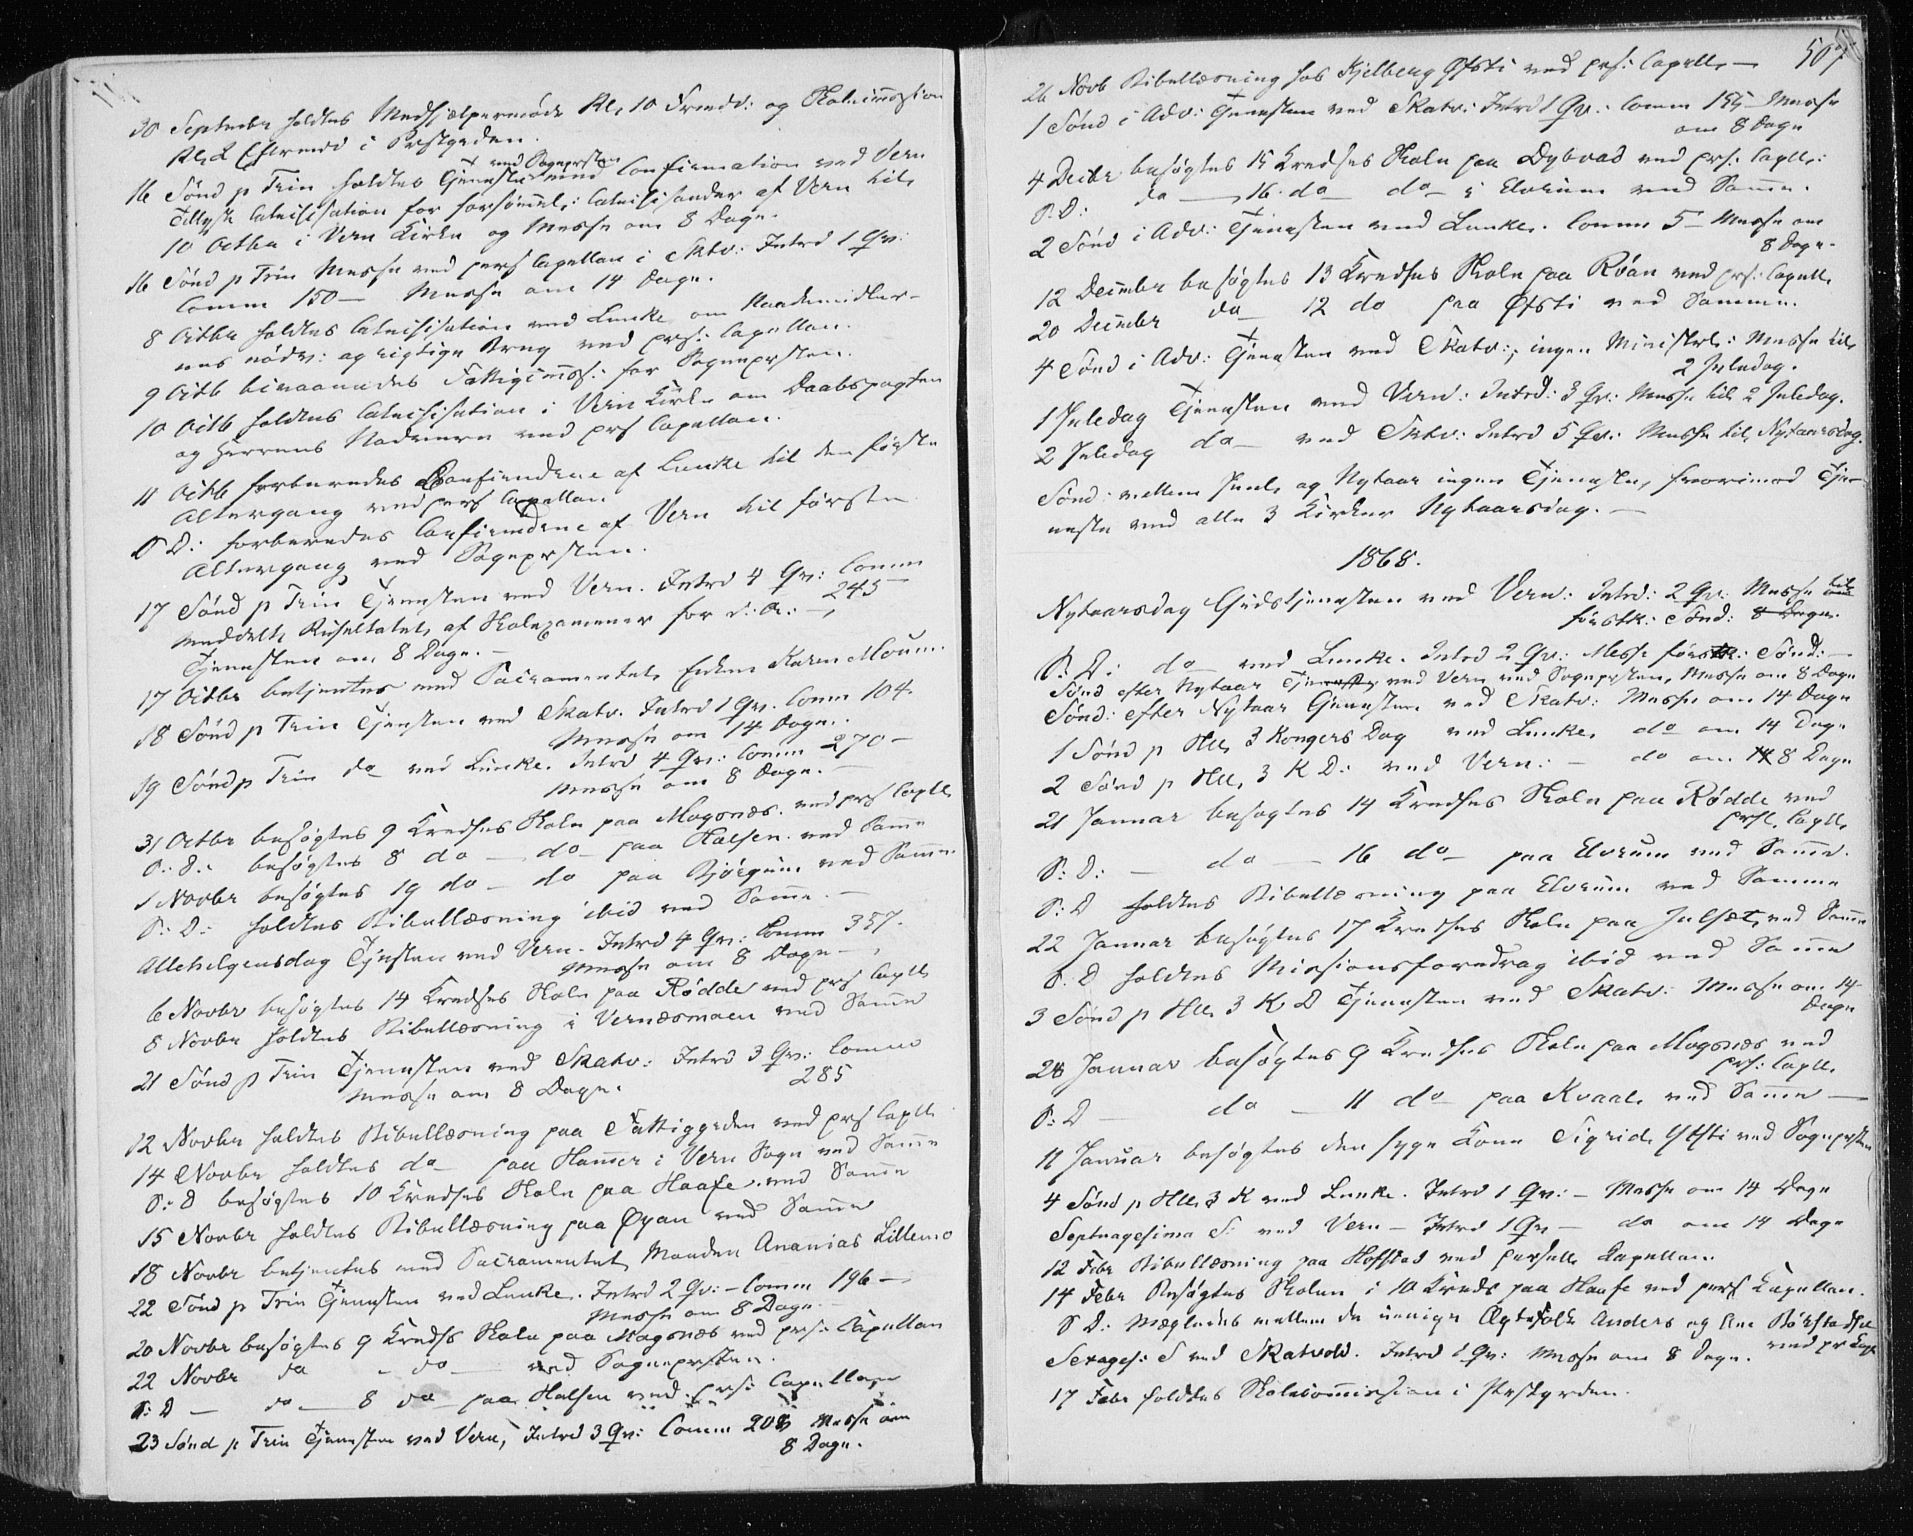 30 September holdtes Medhjælpermøde Kl. 10 Formd: og Skolecommission
Kl. 2 Eftermd i Præstgrden.
16 Sønd p Trin holdtes Tjenesten ved Sognprsten med Confirmation ved Vern
Tillyst Catechisation for forsømel: Catechisander af Vern til
10 Octbr i Vern Kirke og Messe om 8 Dage.
16 Sønd p Trin Messe ved pers Capellan i Sktv: Introd 1 Qv:
Comm 150 — Messe om 14 Dage.
8 Octbr holdtes Catechisation ved Lunke om Naademidler-
nes nødv: og rigtige Brug ved prs: Capellan.
9 Octb Fattigcomss: for Sogneprsten.
10 Octb holdtes Catechisation i Vern Kirke om Daabspagten
og Herrens Nadvere ved prs Capellan.
11 Octb forberedes Confirmdene af Lunke til den første
Altergang ved pers Capellan
S D: forberedes Confirmdene af Vern til første
Altergang ved Sogneprsten.
17 Sønd p Trin Tjenesten ved Vern. Introd 4 Qv: Comm
245 —
meddelt Resultatet af Skolexamener for d: A: —
Tjenesten om 8 Dage. —
17 Octbr betjentes med Sacramentet Enken Karen Moum.
18 Sønd p Trin Tjensten ved Skatv. Introd 1 Qv. Comm 104.
Messe om 14 Dage.
19 Sønd p Trin do ved Lunke. Introd 4 Qv: Comm 270 —
Messe om 8 Dage. —
31 Octbr besøgtes 9 Kredses Skole paa Mogsnæs. ved prs Capll
S: D: besøgtes 8 do — do — paa Halsen. ved Samme
1 Novbr besøgtes 19 do — do paa Bjørgum ved Samme.
S: D: holdtes Bibellæsning ibid ved Samme —
Allehelgensdag Tjnsten ved Vern. Introd 4 Qv: Comm 357.
Messe om 8 Dage —
6 Novbr besøgtes 14 Kredses Skole paa Rødde ved prs Capll
8 Novbr holdtes Bibellæsning i Vernæsmoen ved Samme
21 Sønd p Trin Tjenesten ved Skatv: Introd 3 Qv: Comm
285
Messe om 8 Dage.
12 Novbr holdtes Bibellæsning paa Fattiggrden ved prs Capll
14 Novbr holdtes do — paa Hammer i Vern Sogn ved Samme
S: D besøgtes 10 Kredses Skole paa Haafe. ved Samme
15 Novbr holdtes Bibellæsning paa Øyan ved Samme
18 Novbr betjentes med Sacramentet Manden Ananias Lillemo
22 Sønd p Trin Tjenesten ved Lunke. Introd 2 Qv: — Comm 196 —
Messe om 8 Dage.
20 Novbr besøgtes 9 Kreds Skole paa Mogsnæs ved prs: Capellan
22 Novbr do — do — ved Sogneprsten.
S: D — do — 8 do — paa Halsen ved prs: Capellan
23 Sønd p Trin Tjenesten ved Vern, Introd 3 Qv: Comm 208 Messe om
8 Dage.
507
26 Novb Bibellæsning hos Kjelberg Øfsti ved prs: Capell —
1 Sønd i Adv: Tjenesten ved Skatv: Introd 1 Qv: Comm 155 — Messe
om 8 Dage
4 Decbr besøgtes 15 Kredses Skole paa Dybvad ved prs: Capll:
S. D: do — 16 do do — i Elvrum ved Samme.
2 Sønd i Adv: Tjenesten ved Lunke. Comm 5 — Messe om
8 Dage.
12 Decembr besøgtes 13 Kredses Skole paa Roan ved prs: Capell
20 Decembr do — 12 do paa Øfsti ved Samme.
4 Sønd i Adv: Tjenesten ved Skatv:, ingen Ministrl: Messe til
2 Juledag.
1 Juledag Tjenesten ved Vern: Introd: 3 Qv: Messe til 2 Juledag.
2 Juledag do — ved Sktv: Introd 5 Qv: Messe til Nytaarsdag.
Sønd: mellem Juul og Nytaar ingen Tjeneste, hvorimod Tje-
neste ved alle 3 Kirker Nytaarsdag. —
1868.
Nytaarsdag Gudstjenesten ved Vern: Introd: 2 Qv: Messe til
førstk: Sønd: 8 Dage.
S: D: do — ved Lunke. Introd 2 Qv: Messe førstk: Sønd: —
Sønd efter Nytaar Tjeneste ved Vern ved Sogneprsten, Messe om 8 Dage
Sønd: efter Nytaar Tjenesten ved Skatv: Messe om 14 Dage
1 Sønd p Hll 3 Kongers Dag ved Lunke, do om 14 Dage
2 Sønd p Hll 3 K D: ved Vern: — do om 14 8 Dage
21 Januar besøgtes 14 Kredses Skole paa Rødde ved
prsl. Capll.
S: D: — do — 16 do — paa Elvrum ved Samme.
S: D holdtes Bibellæsning paa Elvrum ved Samme
22 Januar besøgtes 17 Kredses Skole paa Julset ved Samme
S. D holdtes Missionsforedrag ibid ved Samme
3 Sønd p Hll 3 K. D Tjenesten ved Skatv: Messe om 14
Dage
28 Januar besøgtes 9 Kredses Skole paa Mogsnæs ved
prs: Capll.
S: D — do — 11 do — paa Kvaal ved Samme —
11 Januar besøgtes den syge Kone Sigrid Øfsti ved Sogneprsten
4 Sønd p Hll 3 K ved Lunke. Introd 1 Qv: — Messe om 14 Dage
Septuagesima S: ved Vern — Introd 1 Qv — do om 14 Dage
12 Febr Bibellæsning paa Hofstad ved personll Capellan.
14 Febr Besøgtes Skolen i 10 Kreds paa Haafe ved pers Capellan.
S D: Mægledes mellem de uenige Ægtefolk Anders og Ane Børstadsve
ved pr Cap
Sexages: S ved Skatvold. Introd 1 Qv: Messe om 8 Dage.
17 Febr holdtes Skolecommission i Prstgrden.